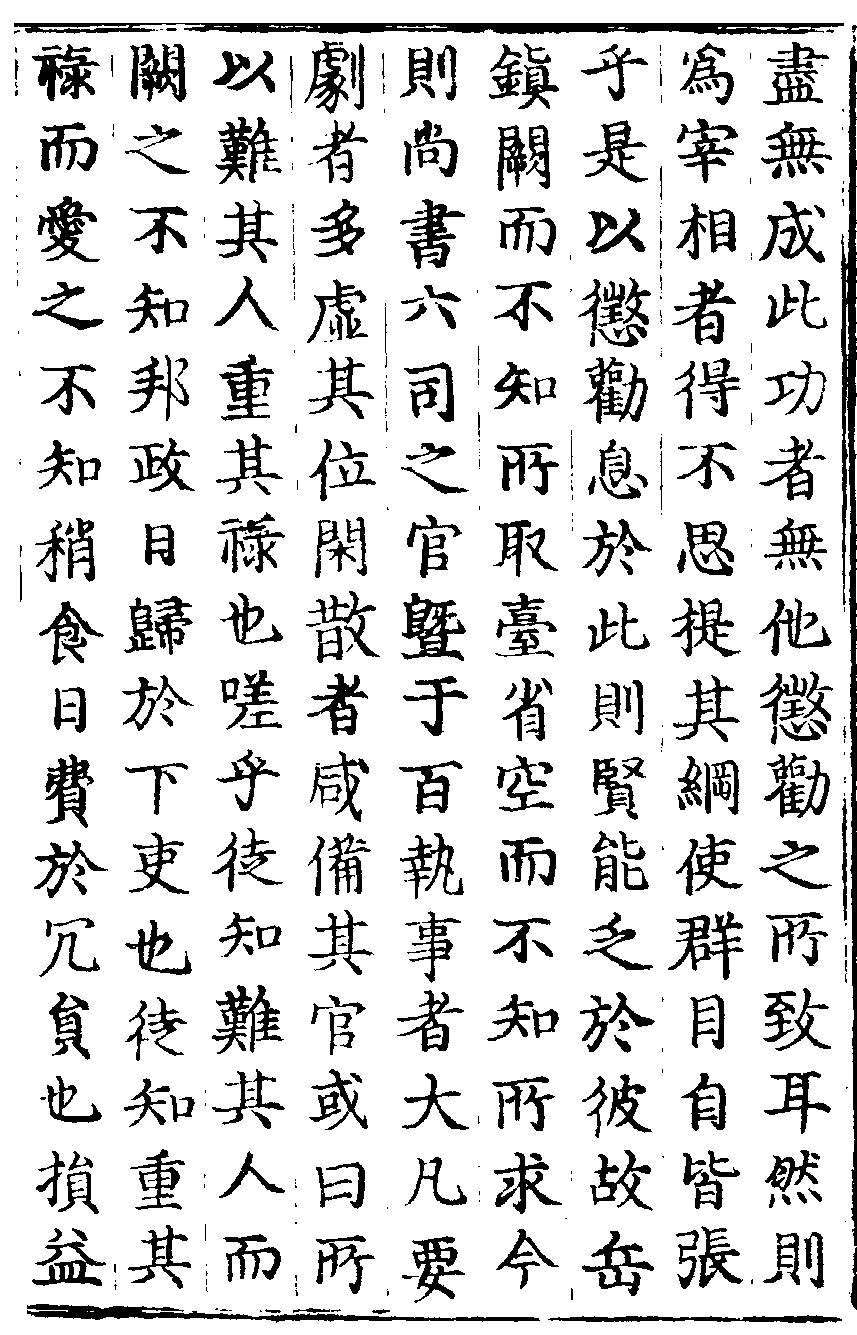 盡無成此功者無他懲勸之所致耳然則
爲宰相者得不思提其綱使群目自皆張
乎是以懲勸息於此則賢能乏於彼故岳
鎮闕而不知所取臺省空而不知所求今
則尚書六司之官曁于百執事者大凡要
劇者多虛其位閑散者咸備其官或曰所
以難其人重其祿也嗟乎徒知難其人而
闕之不知邦政日歸於下吏也徒知重其
祿而愛之不知稍食日費於冗貟也損益